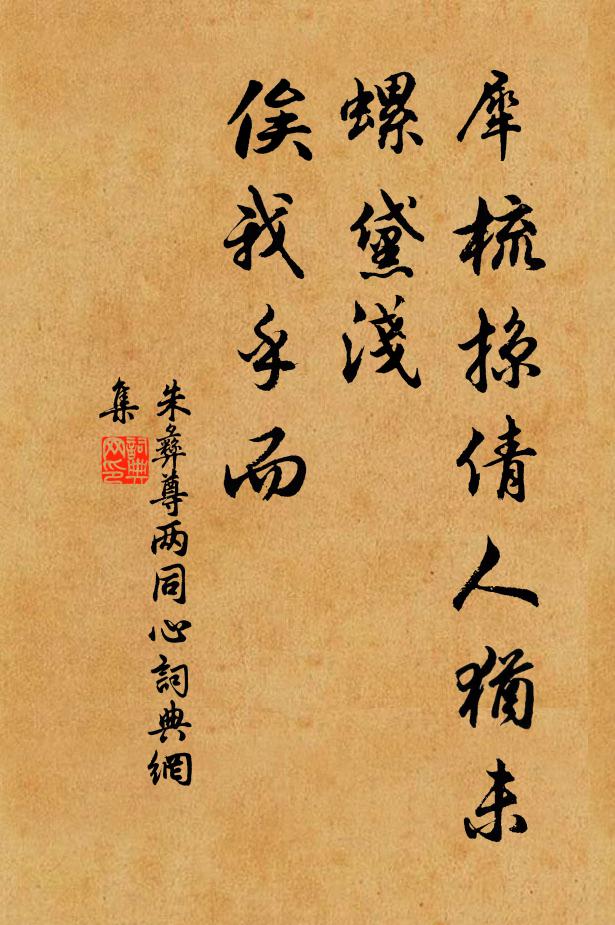 犀梳掠倩人猶未
螺黛淺
俟我乎而
朱彝尊两同心詞典網
集
詞典
网印